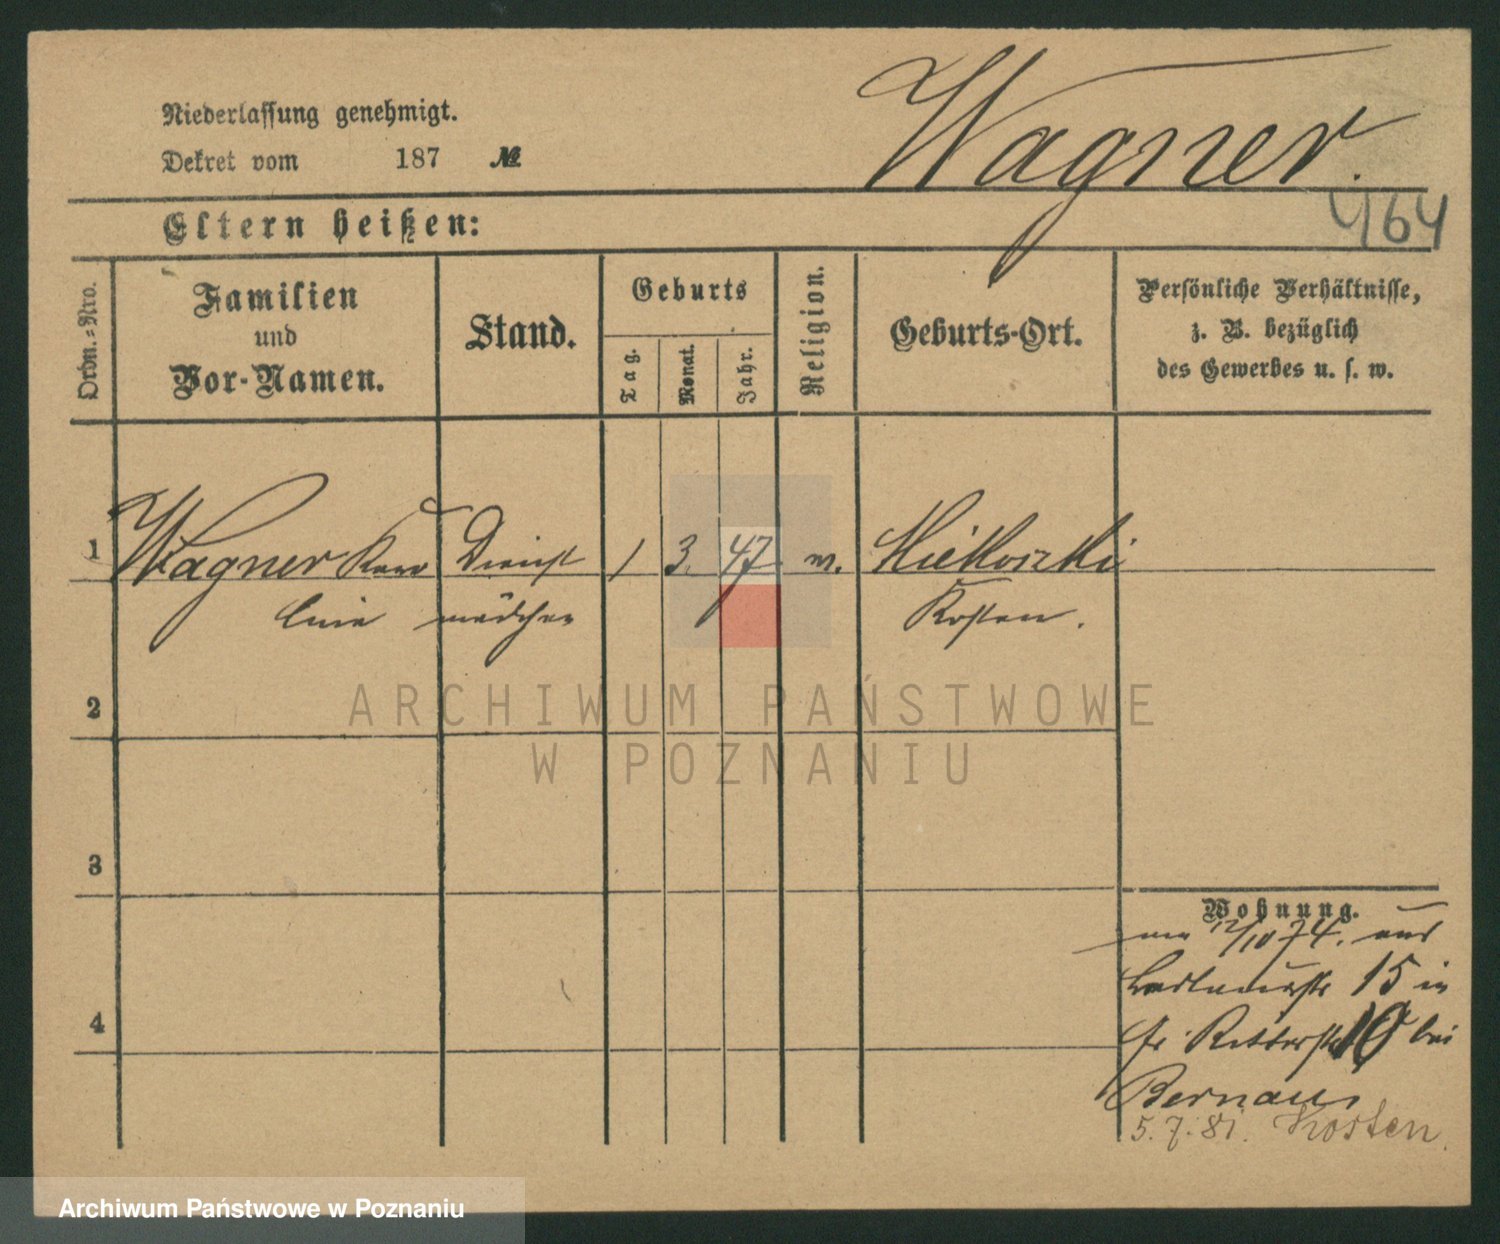 Wagner.
Niederlassung genehmigt.
Dekret vom 187 №
464
Eltern heißen:
Ordn.=Nro.
Familien
und
Vor-Namen.
Stand.
Geburts
Tag.
Monat.
Jahr.
Religion.
Geburts-Ort.
Persönliche Verhältnisse,
z. B. bezüglich
des Gewerbes u. s. w.
1 Wagner Karo Dienst 1 3. 47 Kosten.
line mädchen
2
3
4
Wohnung.
12/10 74. aus
15 in
Ritterstr 10 bei
Bernau
5.7.81. Kosten
ARCHIWUM PAŃSTWOWE
W POZNANIU
Archiwum Państwowe w Poznaniu